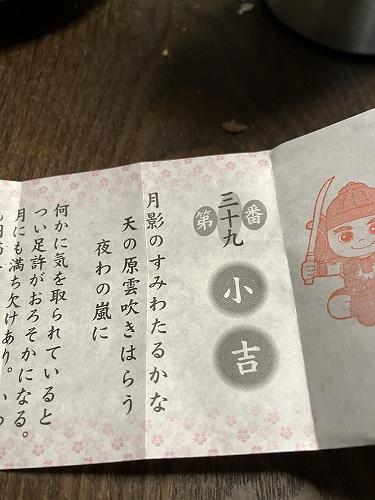 第三十九番
小吉
月影のすみわたるかな
天の原雲吹きはらう
夜わの嵐に
何かに気を取られていると
つい足許がおろそかになる。
月にも満ち欠けあり。いつ